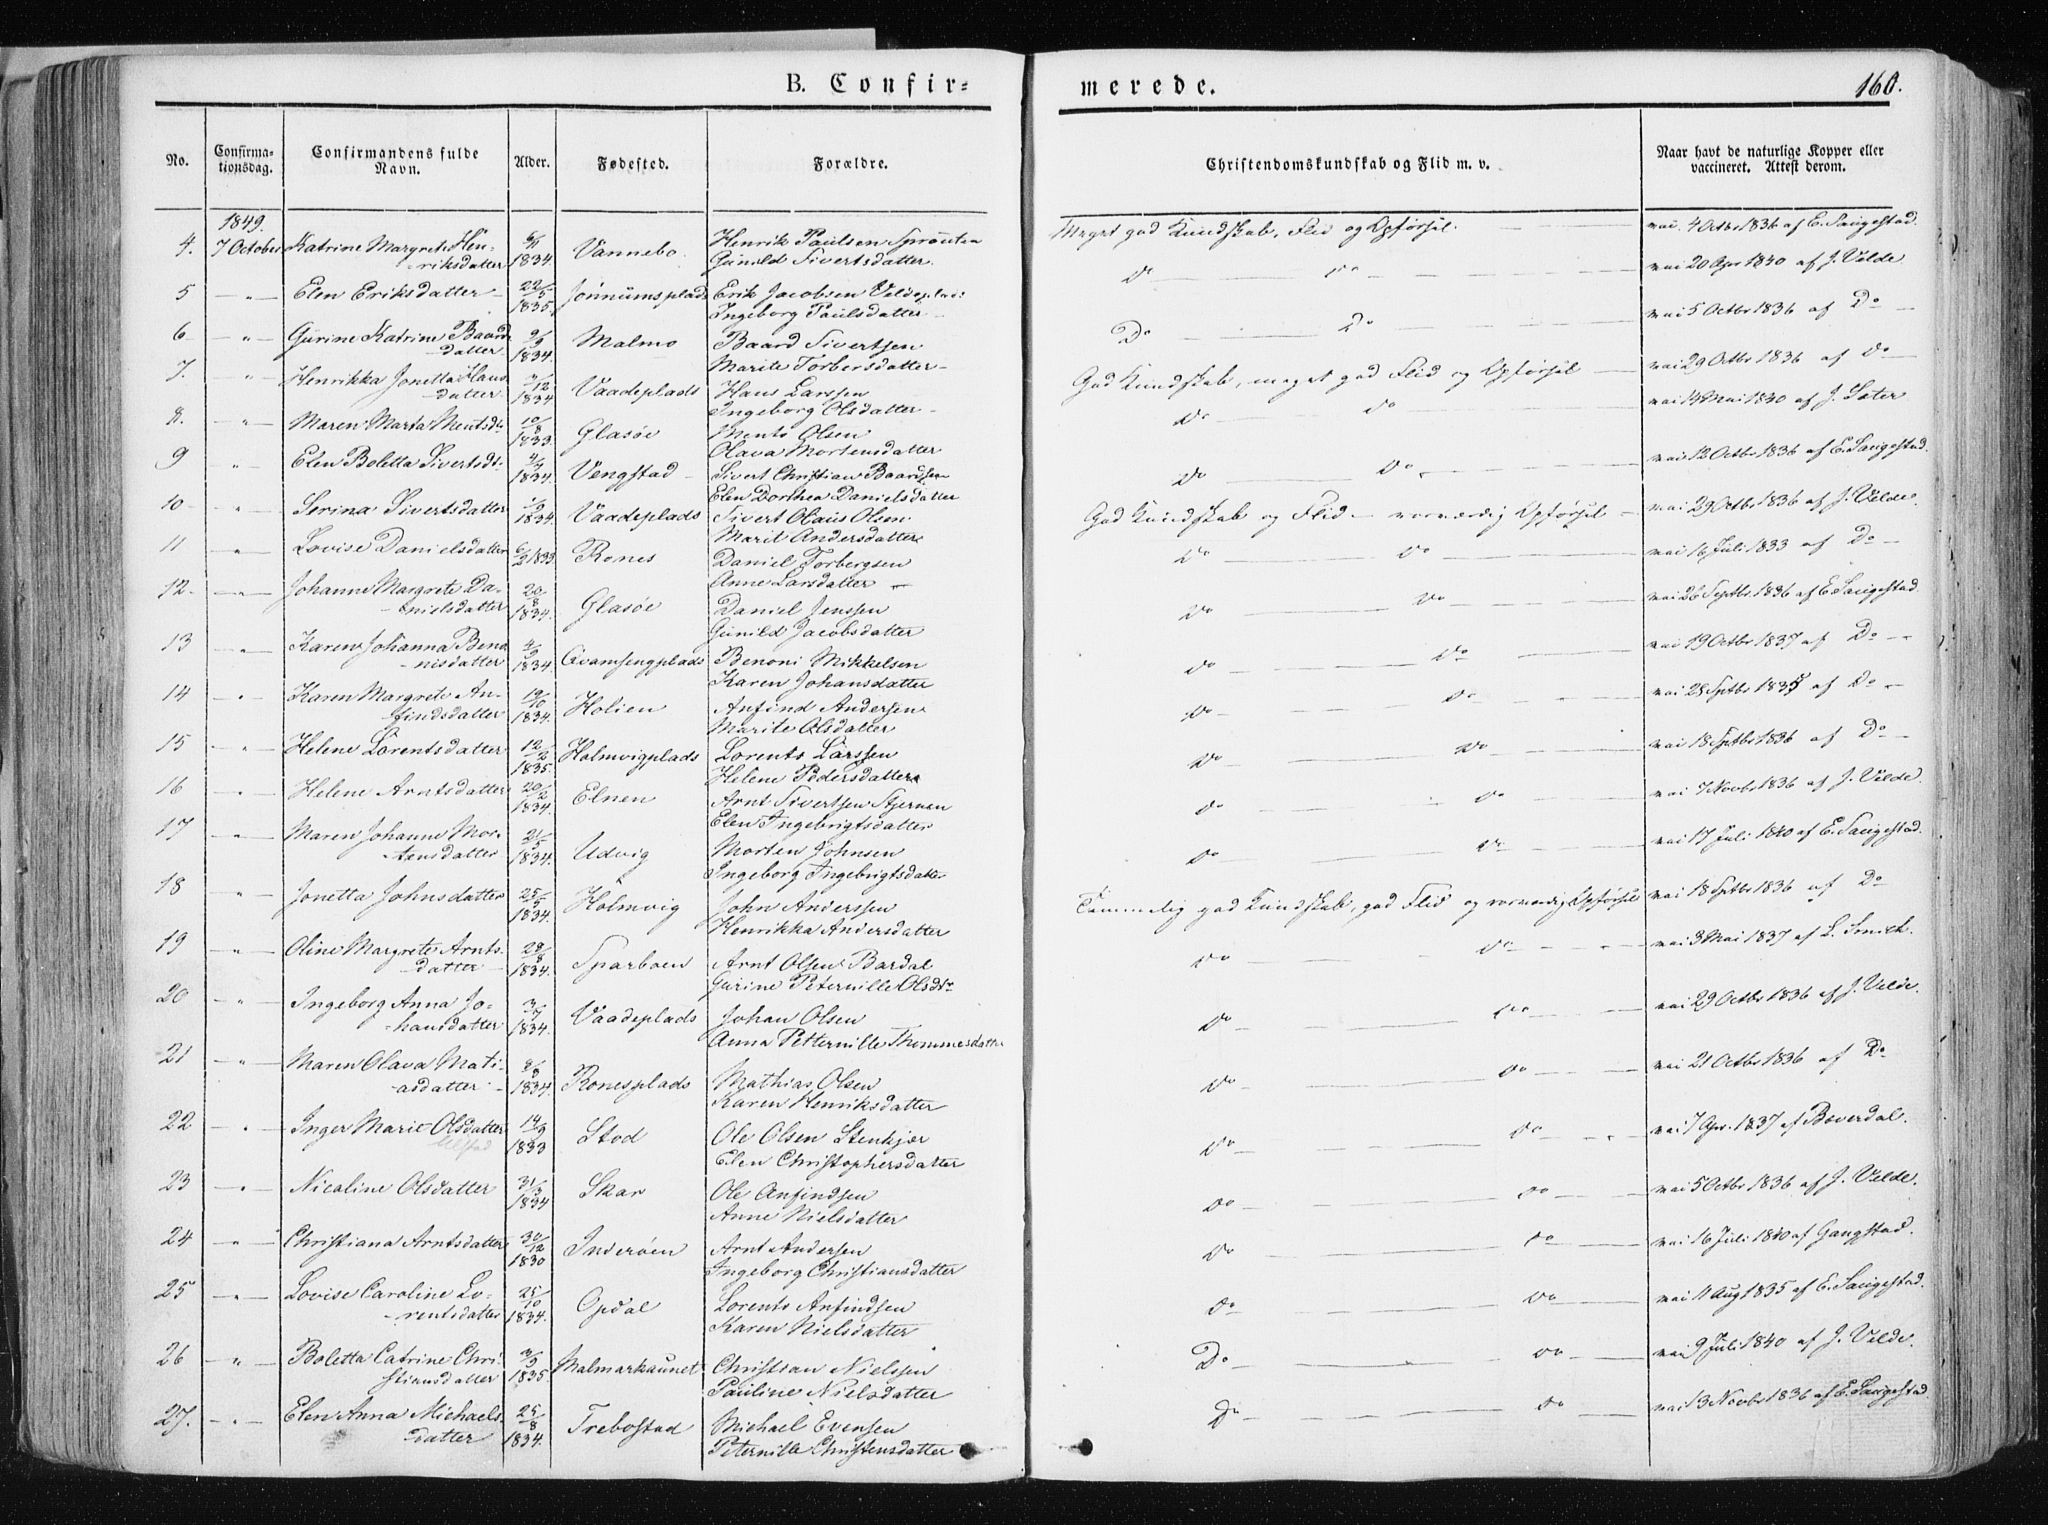 B. Confir-
merede.
160.
No.
Confirma-
tionsdag.
Confirmandens fulde
Navn.
Alder.
Fødested.
Forældre.
Christendomskundskab og Flid m. v.
Naar havt de naturlige Kopper eller
vaccineret. Attest derom.
1849.
4. 7 October Katrine Margrete Hen-
riksdatter 1834 Vannebo Henrik Paulsen
Gunild Sivertsdatter.
Meget god Kundskab, Flid og Opførsel. 4 Octbr 1836 af E. Saugestad.
5 " Elen Eriksdatter 22/5 1835. Jønnumsplads Erik Jacobsen
Ingeborg Paulsdatter
Do Do 20 Apr 1840 af J. Velde
6 " Gurine Katrine Baards
datter 9/9 1834. Malmo Baard Sivertsen
Marite Torbersdatter
Do Do 5 Octbr 1836 af Do
7. " Henrikka Jonetta Hans
datter /12 1834 Vaadeplads Hans Larssen
Ingeborg Olsdatter
God Kundskab, meget god Flid og Opførsel 29 Octbr 1836 af Do
8. " Maren Marta Mentsdtr 10/8 1833. Glasøe Ments Olsen
Olava Mortensdatter
Do Do 14 Mai 1840 af J. Sater
9 " Elen Boletta Sivertsdtr. 1834. Vengstad Sivert Christian Baardsen
Elen Dorthea Danielsdatter
Do Do 12 Octbr 1836 af E. Saugestad.
10 " Serina Sivertsdatter 1834. Vaadeplads Sivert Olaus Olsen
Marit Andersdatter
God Kundskab og Flid - Opførsel 29 Octbr 1836 af J. Velde.
11 " Lovise Danielsdatter 1833 Rones Daniel Torbergsen
Anne Larsdatter
Do Do 16 Juli 1833 af Do
12. " Johanne Margrete Da-
nielsdatter 20/8 1834. Glasøe Daniel Jenssen
Gunild Jacobsdatter
Do Do 26 Septbr 1836 af E. Saugestad.
13 " Karen Johanna Beno
nisdatter 4/9 1834. Qvamsengplads Benoni Mikkelsen
Karen Johansdatter
Do Do 19 Octbr 1837 af Do
14 " Karen Margrete An-
findsdatter 19/10 1834. Holien Anfind Andersen
Marite Olsdatter
Do Do 28 Sptbr 1835 af Do
15 " Helene Lorentsdatter 12/2 1835. Holmvigplads Lorents Larssen
Helene Pedersdatter
Do Do 18 Sptbr 1836 af Do
16 " Helene Arntsdatter 20/2 1834. Elnen Arnt Sivertsen Stjernen
Elen Ingebrigtsdatter
Do Do 7 Novbr 1836 af J. Velde.
17 " Maren Johanne Mor-
tensdatter 21/5 1834. Udvig Morten Johnsen
Ingeborg Ingebrigtsdatter
Do Do 17 Juli 1840 af E. Saugestad.
18 " Jonetta Johnsdatter 25/5 1834. Holmvig John Anderssen
Henrikka Andersdatter
Temmelig god Kundskab, god Flid og Opførsel 18 Sptbr 1836 af Do
19 " Oline Margrete Arnts
datter 28/8 1834. Sparboen Arnt Olsen Bardal
Gurine Peternille Olsdtr
Do Do 3 Mai 1837 af L. Smith.
20 " Ingeborg Anna Jo-
hansdatter 3/7 1834. Vaadeplads Johan Olsen
Anna Petternille Thommesdatter
Do Do 29 Octbr 1836 af J. Velde.
21 " Maren Olava Mati-
asdatter 8/8 1834. Ronesplads Mathias Olsen
Karen Henriksdatter
Do Do 21 Octbr 1836 af Do
22 " Inger Marie Olsdatter 14/9 1833 Stod Ole Olsen Stenkjær
Elen Christophersdatter
Do Do 7 Apr. 1837 af Boverdal.
23 " Nicoline Olsdatter 31/3 1834 Skar Ole Anfindsen
Anne Nielsdatter
Do Do 5 Octbr 1836 af J. Velde.
24 " Christiana Arntsdatter 30/12 1830 Inderøen Arnt Andersen
Ingeborg Christiansdatter
Do Do 16 Juli 1840 af Gangstad.
25 " Lovise Caroline Lo-
rentsdatter 25/10 1834. Opdal Lorents Anfindsen
Karen Nielsdatter
Do Do 11 Aug 1835 af E. Saugestad.
26 " Boletta Catrine Chri-
stiansdatter 1835. Malmarkaunet Christian Nielssen
Pauline Nielsdatter
Do Do 9 Juli 1840 af J. Velde.
27. " Elen Anna Michaels
datter 25/8 1834. Trebostad Michael Evensen
Peternille Christensdatter
Do Do 13 Novbr 1836 af E. Saugestad